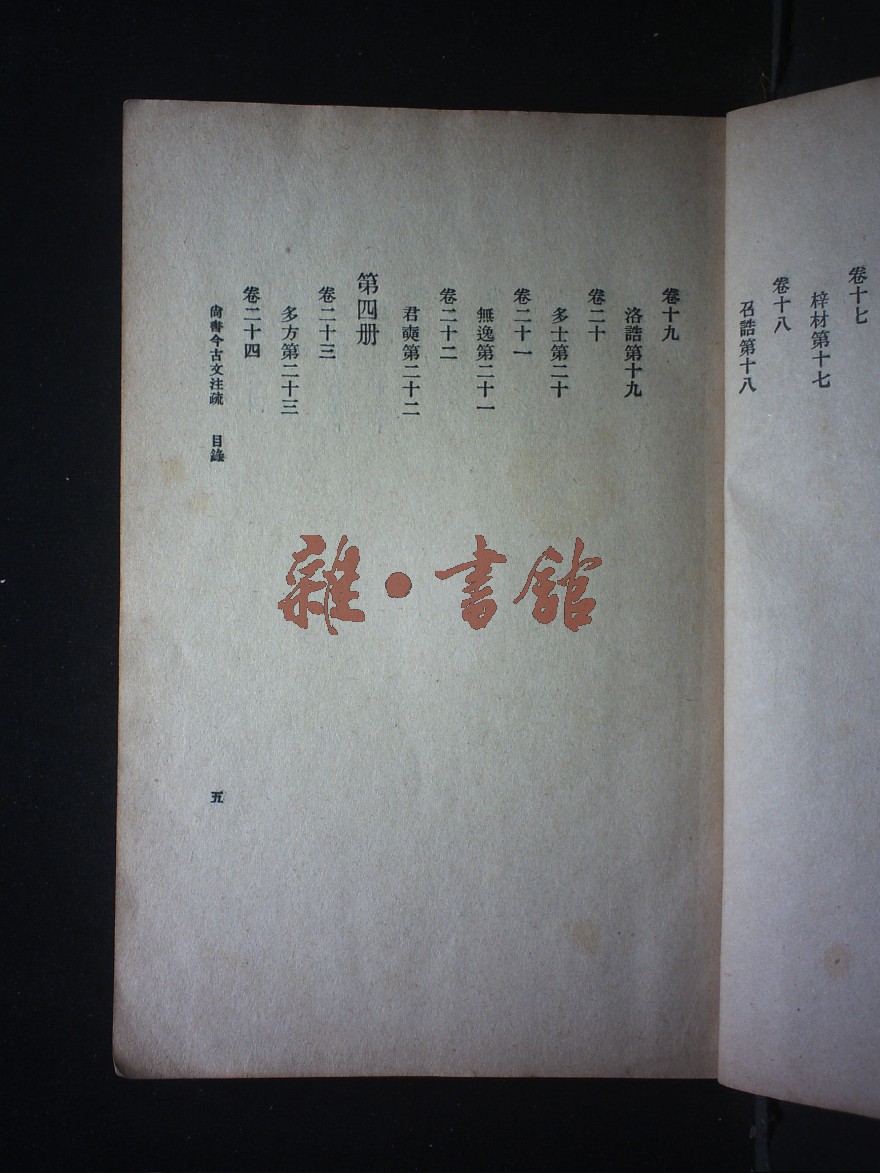 卷十七
梓材第十七
卷十八
召誥第十八
卷十九
洛誥第十九
卷二十
多士第二十
卷二十一
無逸第二十一
卷二十二
君奭第二十二
第四册
卷二十三
多方第二十三
卷二十四
尙書今古文注疏 目錄
五
雜·書館